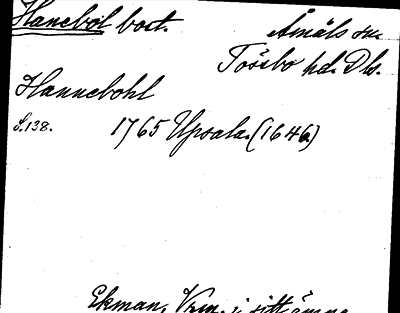 Haneböl bost. Åmåls sn.
Tössbo hd. Dls.
Hannebohl
S.138. 1765 Upsala. (1646)
Ekman, Vrm. i sitt ämne